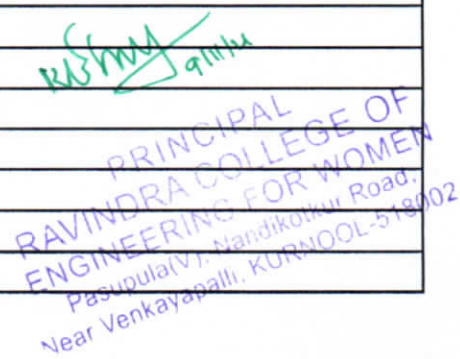 PRINCIPAL
RAVINDRA COLLEGE OF
ENGINEERING FOR WOMEN
Pasupula(V), Nandikotkur Road,
Near Venkayapalli, KURNOOL-518002